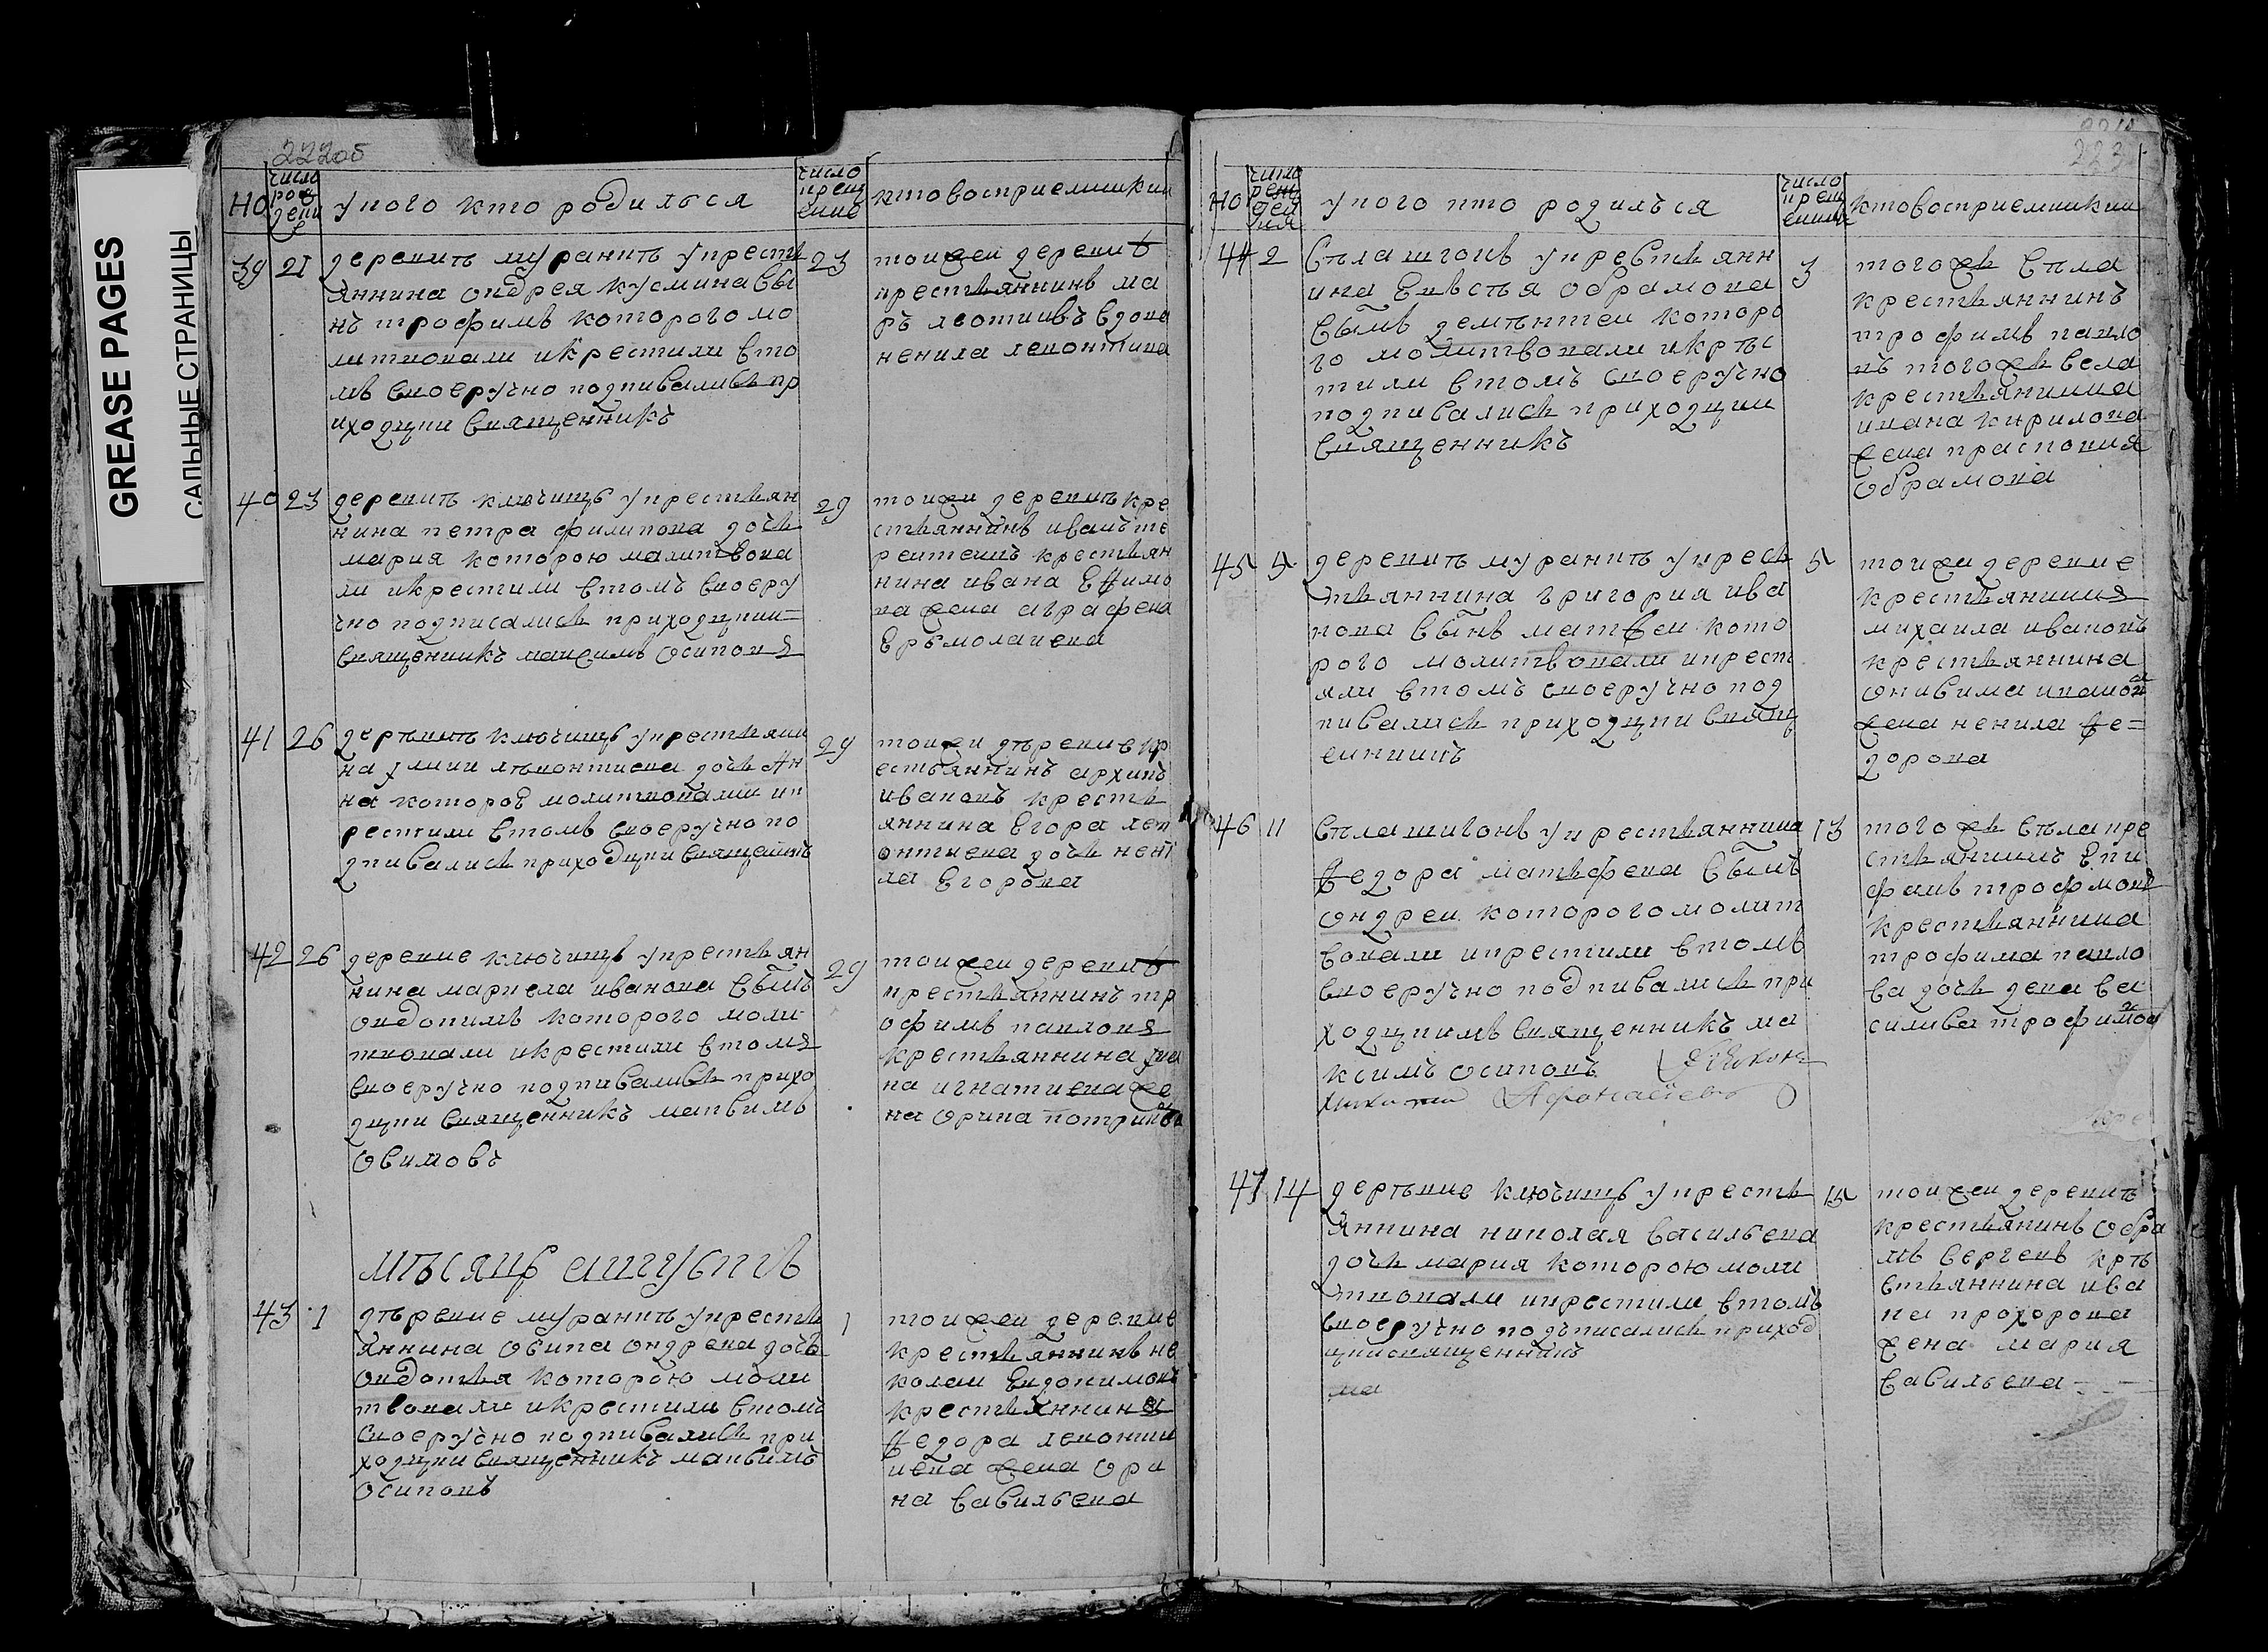 GREASE PAGES
САЛЬНЫЕ СТРАНИЦЫ
222об
НО
число
рож
дени
е
у кого кто родилься
число
крещ
ение
кто восприемники
39 21 деревнѣ муранѣ у крестъ
янниna ондрея кусмина сы
нъ трофимъ которого мо
литвовали и крестили в то
мъ своеручно подписались пр
иходции священникъ
23 тои жеи деревнѣ
крестьяннинъ ма
ркъ леонтиевъ вдова
ненила левонтиева
40 23 деревнѣ ключищъ у крестьян
нина петра филипова дочь
мария которою малитвова
ли и крестили в томъ своеру
чно подписались приходции
священникъ максимъ осиповъ
29 тои жеи деревнѣ кре
стьяннинъ иванъ те
рентевъ крестьян
нина ивана ефимо
ва жена аграфена
ерьмолаиева
41 26 дерѣвнѣ ключищъ у крестьянни
на лѣвонтиева дочь Ан
на которое молитвовали и к
рестили в томъ своеручно по
дписались приходции священникъ
29 тои жеи дѣревне кр
естьяннинъ архипъ
ивановъ кресть
яннина егора лев
онтиева дочь нени
ла егорова
42 26 деревне ключищъ у крестьян
нина маркела иванова сынъ
овдокимъ которого моли
твовали и крестили в томъ
своеручно подписались прихо
дции священникъ максимъ
осиповъ
29 тои жеи деревнѣ
крестьяннинъ тр
офимъ павловъ
крестьяннина ива
на игнатиева же
на орина потрикѣва
мѣсяцъ августъ
43 1 дѣревне муранѣ у кресть
яннина осипа ондрева дочь
овдотья которою моли
твовали и крестили в томъ
своеручно подписались при
ходции священникъ максимъ
осиповъ
1 тои жеи деревне
крестьяннинъ не
колаи евдокимовъ
крестьяннина
федора левонти
иева жена ори
на васильева
223
НО
число
рож
ден
ия
у кого кто родилъся
число
крещ
ения
кто восприемники
44 2 села шигонъ у крестьянн
ина евъстья обрамова
сынъ дементеи которо
го молитвовали и крѣс
тили в томъ своеручно
подписались приходции
священникъ
3 того жъ села
крестьяннинъ
трофимъ павло
въ того жъ села
крестьянина
ивана кирилова
жена прасковия
обрамова
45 5 деревнѣ муранѣ у кресь
тьяннина григория ива
нова сынъ матфеи кото
рого молитвовали и крест
или в томъ своеручно под
писались приходции свящ
енникъ
5 тои жеи деревне
крестьянинъ
михаила ивановъ
крестьяннина
онисима иванова
жена ненила фе=
дорова
46 11 села шигонъ у крестьяннина
федора матьфева сынъ
ондреи которого молит
вовали и крестили в томъ
своеручно подписались при
ходциимъ священникъ ма
ксимъ осиповъ
13 того жъ села кре
стьяннинъ епи
фанъ трофмовъ
крестьяннина
трофима павло
ва дочь дева ва
силиса трофимова
47 14 дерѣвне ключищъ у кресть
яннина николая васильева
дочь мария которою моли
твовали и крестили в томъ
своеручно подъписались приход
ции священникъ
ма
15 тои жеи деревнѣ
крестьянинъ обра
мъ сергеивъ крѣ
стьяннина ива
на прохорова
жена мария
васильева